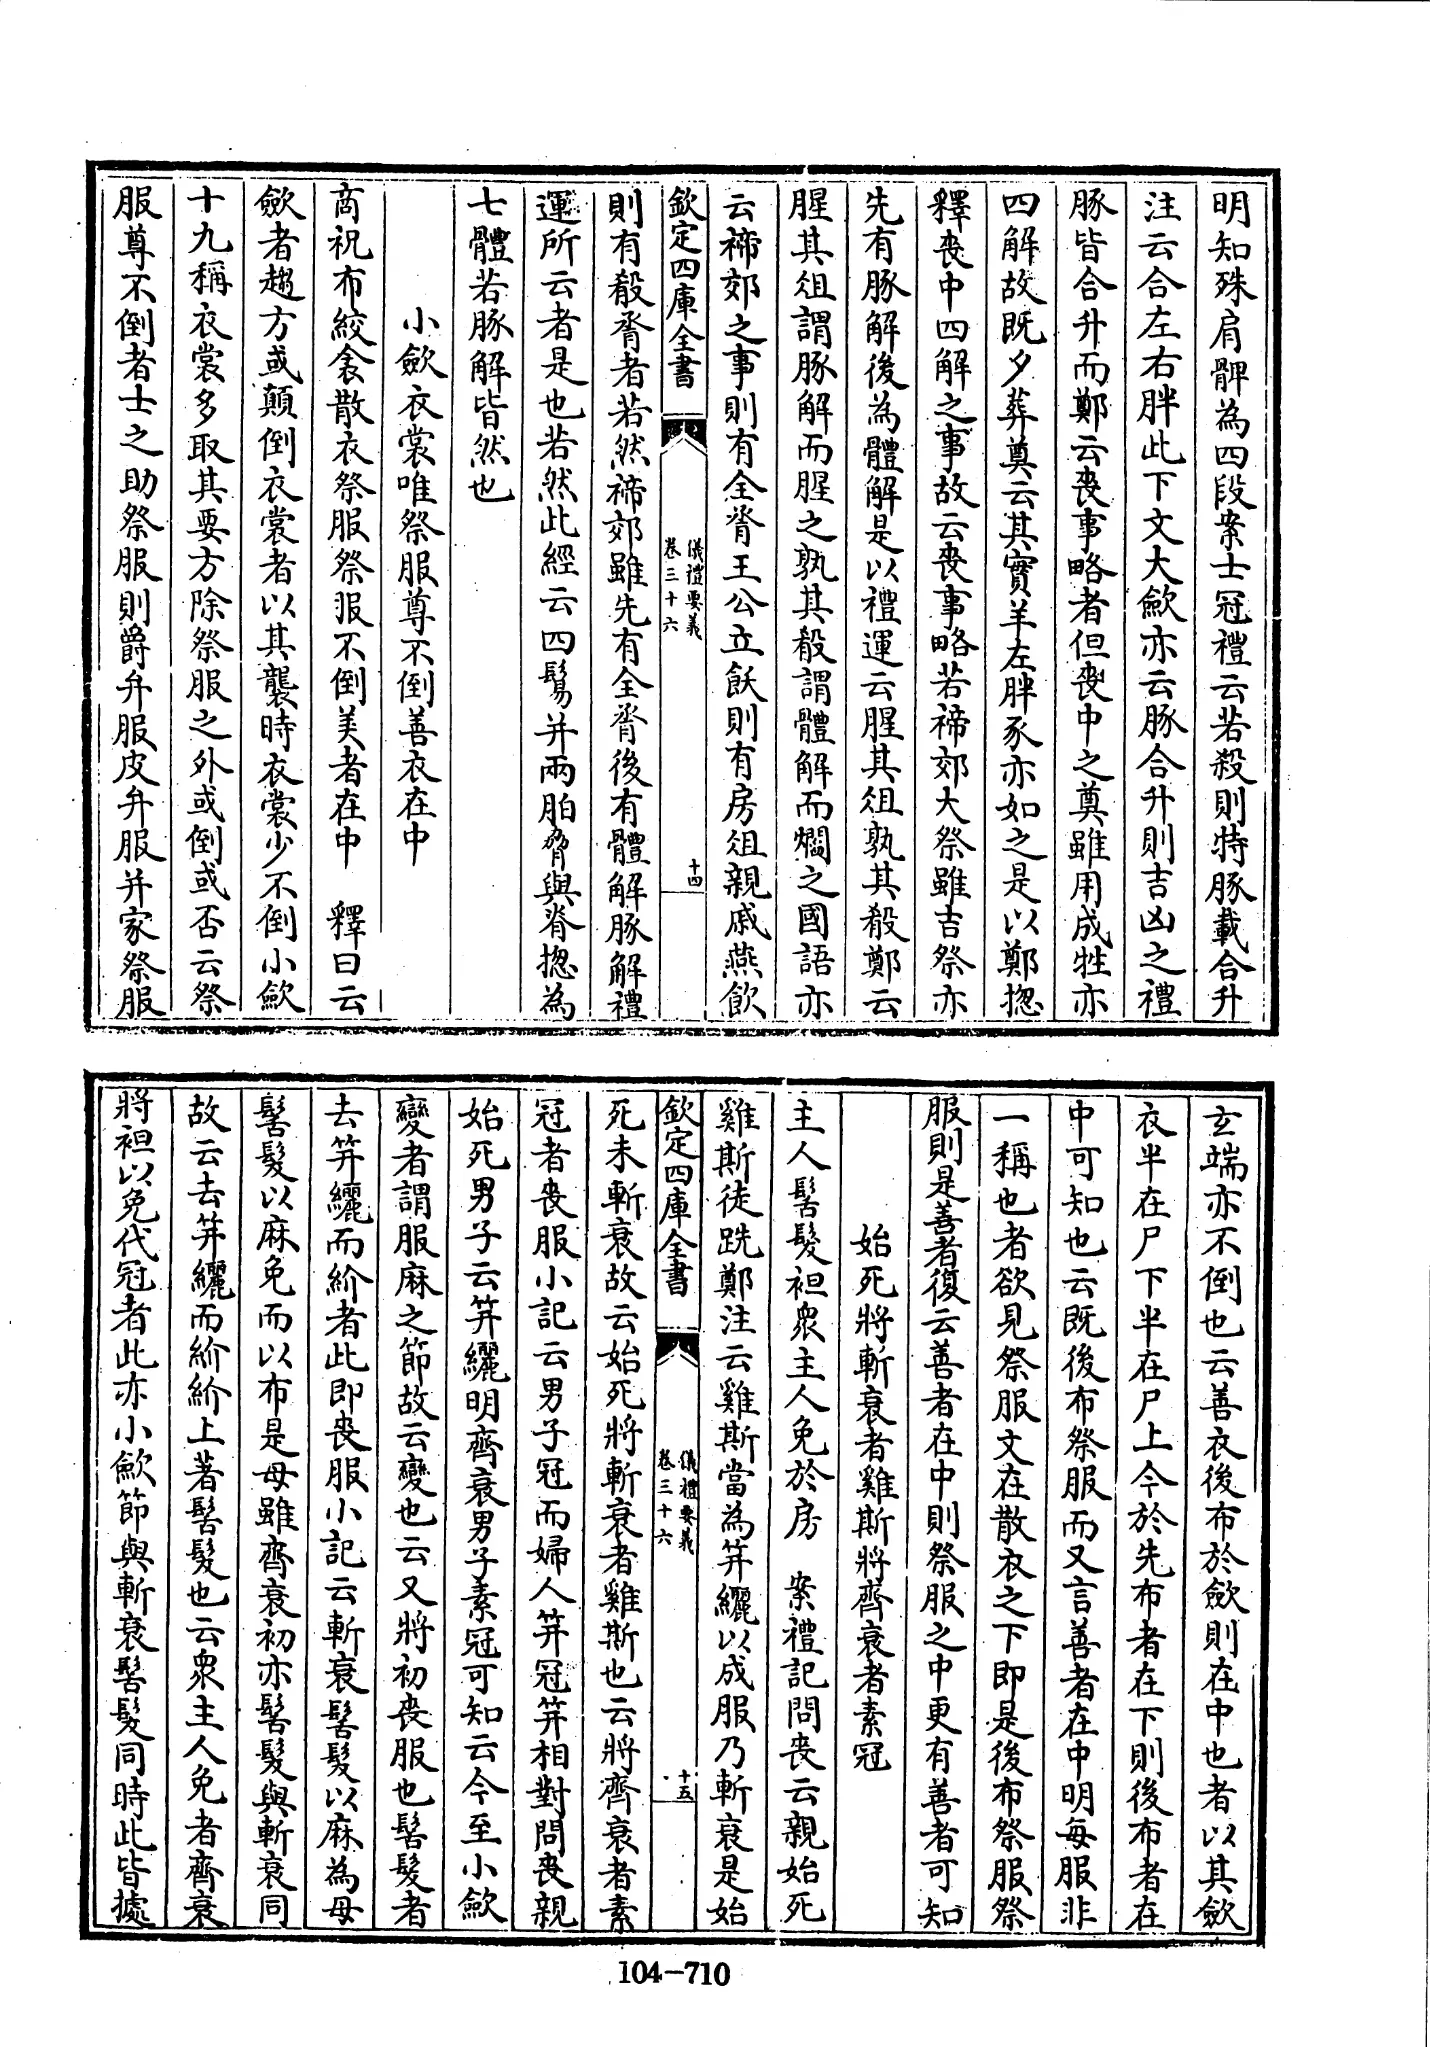 明知殊肩髀為四段案士冠禮云若殺則特豚載合升
注云合左右胖此下文大斂亦云豚合升則吉凶之禮
豚皆合升而鄭云喪事略者但喪中之奠雖用成牲亦
四解故既夕葬奠云其實羊左胖豕亦如之是以鄭揔
釋喪中四解之事故云喪事略若禘郊大祭雖吉祭亦
先有豚解後為體解是以禮運云腥其俎孰其殽鄭云
腥其俎謂豚解而腥之孰其殽謂體解而爓之國語亦
云禘郊之事則有全脀王公立飫則有房俎親戚燕飲
欽定四庫全書
儀禮要義
卷三十六
十四
則有殽脀者若然禘郊雖先有全脀後有體解豚解禮
運所云者是也若然此經云四鬄并兩胉脅與脊揔為
七體若豚解皆然也
小斂衣裳唯祭服尊不倒善衣在中
商祝布絞衾散衣祭服祭服不倒美者在中 釋曰云
斂者趨方或顛倒衣裳者以其襲時衣裳少不倒小斂
十九稱衣裳多取其要方除祭服之外或倒或否云祭
服尊不倒者士之助祭服則爵弁服皮弁服并家祭服
玄端亦不倒也云善衣後布於斂則在中也者以其斂
衣半在尸下半在尸上今於先布者在下則後布者在
中可知也云既後布祭服而又言善者在中明每服非
一稱也者欲見祭服文在散衣之下即是後布祭服祭
服則是善者復云善者在中則祭服之中更有善者可知
始死將斬衰者雞斯將齊衰者素冠
主人髻髮袒衆主人免於房 案禮記問喪云親始死
雞斯徒跣鄭注云雞斯當為笄纚以成服乃斬衰是始
欽定四庫全書
儀禮要義
卷三十六
十五
死未斬衰故云始死將斬衰者雞斯也云將齊衰者素
冠者喪服小記云男子冠而婦人笄冠笄相對問喪親
始死男子云笄纚明齊衰男子素冠可知云今至小斂
變者謂服麻之節故云變也云又將初喪服也髻髮者
去笄纚而紒者此即喪服小記云斬衰髻髮以麻為母
髻髮以麻免而以布是母雖齊衰初亦髻髮與斬衰同
故云去笄纚而紒紒上著髻髮也云衆主人免者齊衰
將袒以免代冠者此亦小斂節與斬衰髻髮同時此皆據
104-710